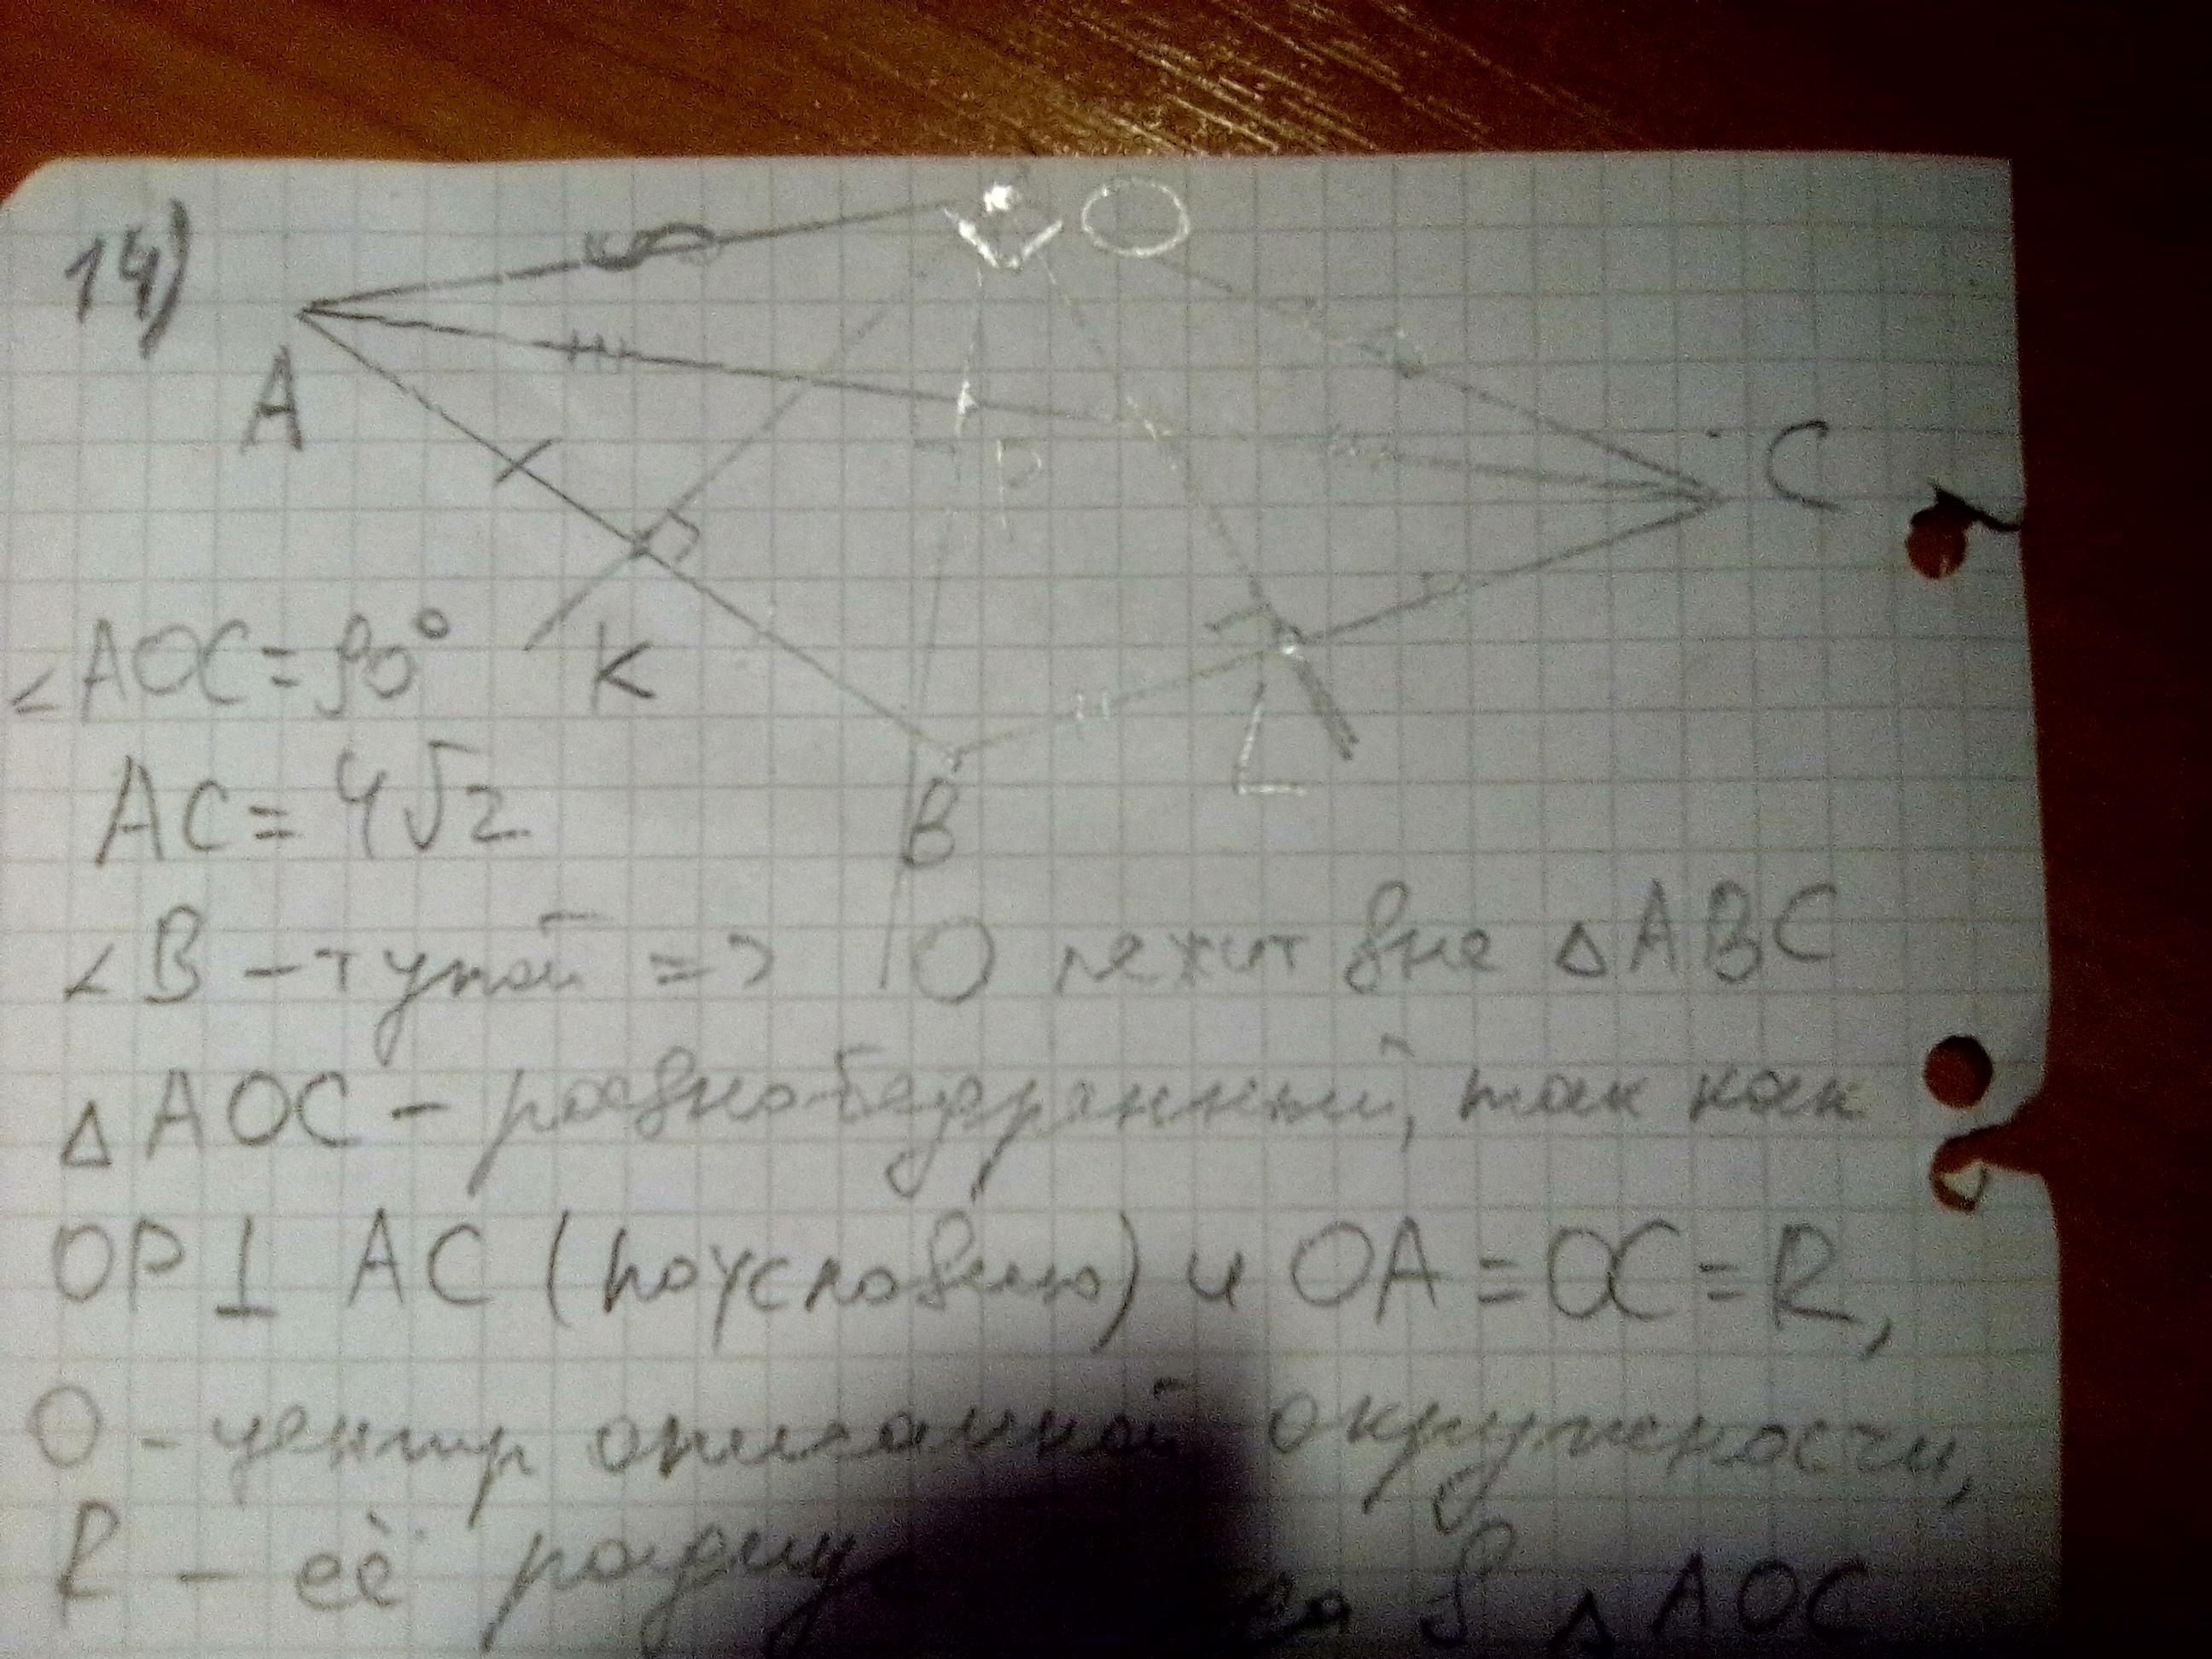 14)
O
A
C
P
K
L
B
∠AOC = 90°
AC = 4√2
∠B - тупой => O лежит вне △ABC
△AOC - равнобедренный, так как
OP ⊥ AC (по условию) и OA = OC = R,
O - центр описанной окружности,
R - её радиус △AOC